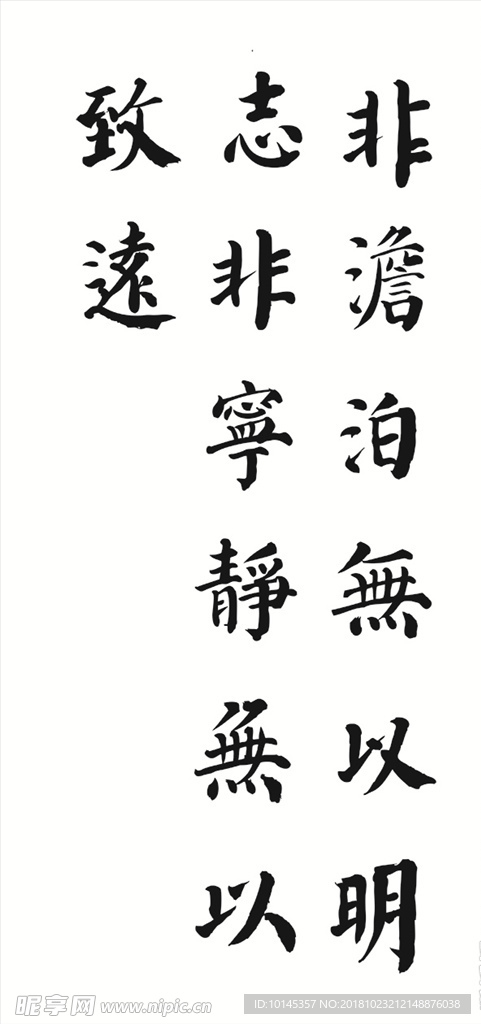 非澹泊無以明
志非寧靜無以
致遠
昵享网 www.nipic.cn
ID:10145357 NO:20181023212148876038